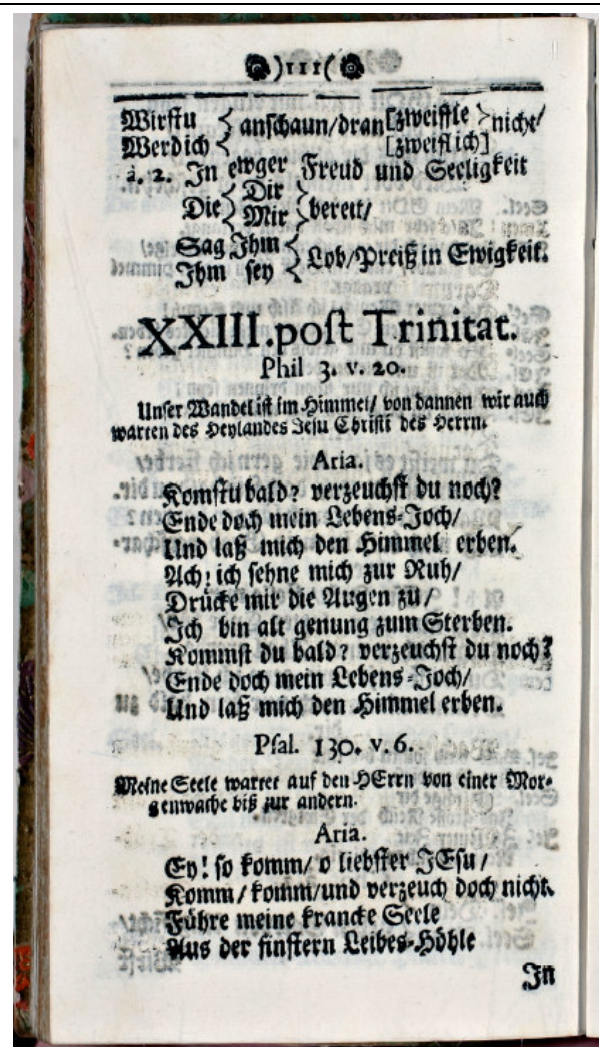 )111(
Wirstu { anschaun/dran [zweiffle } nicht/
Werdich { [zweifl ich]
à. 2. In ewger Freud und Seeligkeit
Die { Dir } bereit/
Mir
Sag Ihm { Lob/Preiß in Ewigkeit.
Ihm sey
XXIII. post Trinitat.
Phil 3. v. 20.
Unser Wandel ist im Himmel/ von dannen wir auch
warten des Heylandes Jesu Christi des Herrn.
Aria.
Komstu bald? verzeuchst du noch?
Ende doch mein Lebens-Joch/
Und laß mich den Himmel erben.
Ach! ich sehne mich zur Ruh/
Drücke mir die Augen zu/
Ich bin alt genung zum Sterben.
Kommst du bald? verzeuchst du noch?
Ende doch mein Lebens-Joch/
Und laß mich den Himmel erben.
Psal. 130. v. 6.
Meine Seele wartet auf den HErrn von einer Mor-
genwache biß zur andern.
Aria.
Ey! so komm/ o liebster JEsu/
Komm/ komm/und verzeuch doch nicht.
Führe meine krancke Seele
Aus der finstern Leibes-Höhle
In